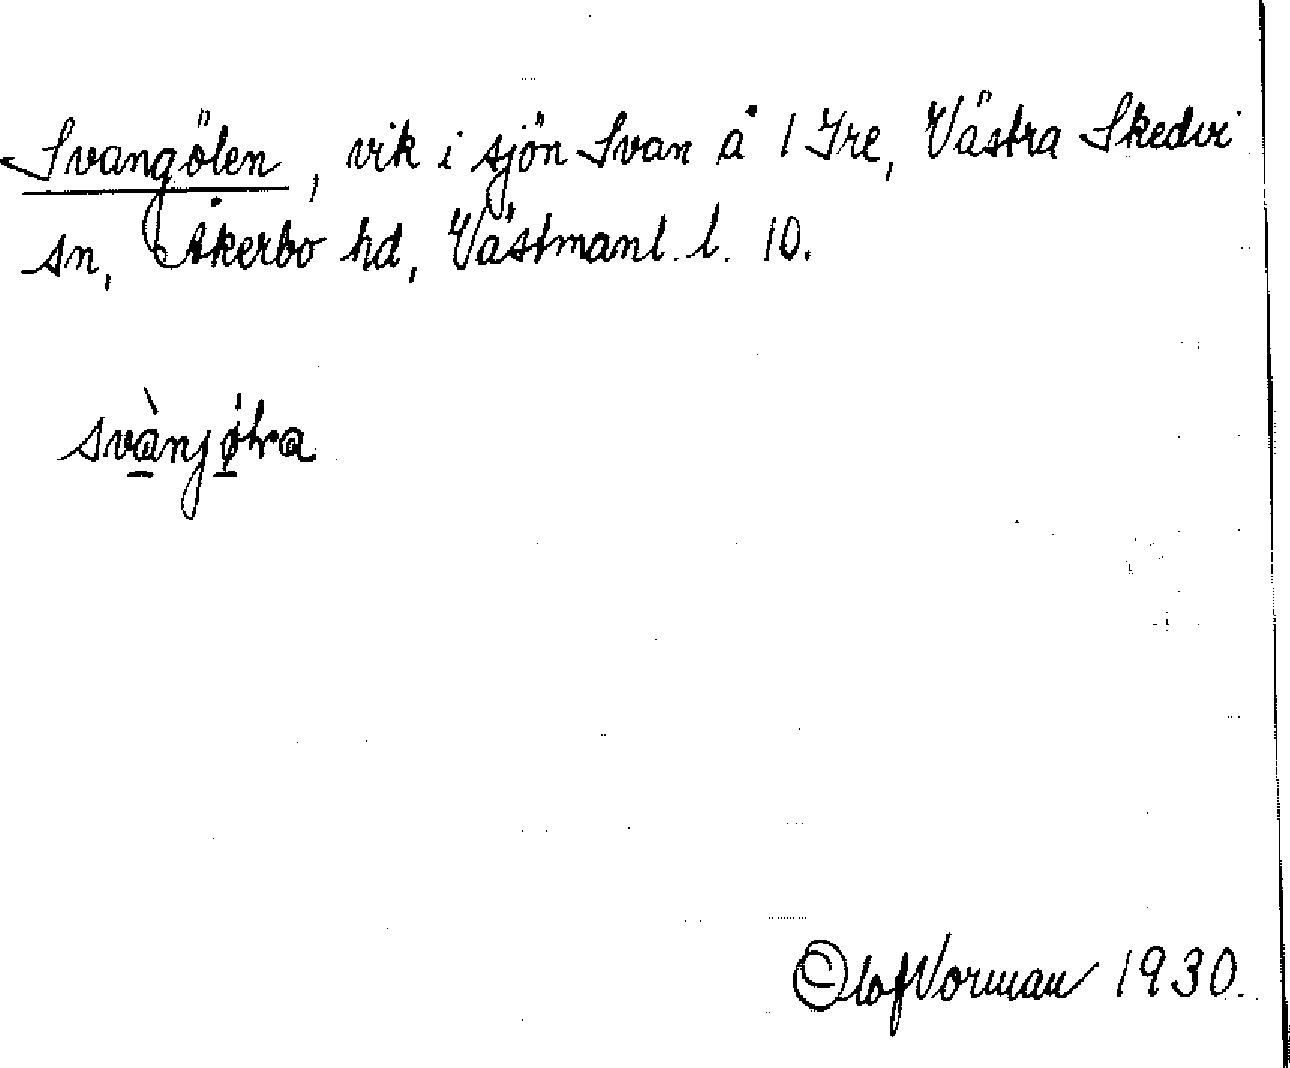 Svangölen, vik i sjön Svan å 1 Ire, Västra Skedvi
sn, Åkerbo hd, Västmanl. l. 10.
svànjǿlra
Olof Vorman 1930.